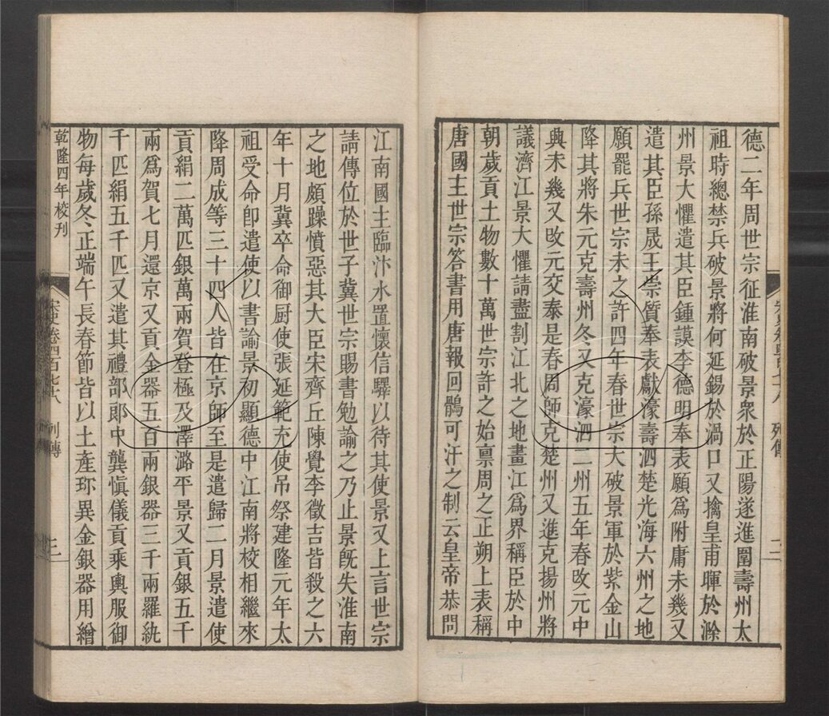 德二年周世宗征淮南破景衆於正陽遂進圍壽州太
祖時總禁兵破景將何延錫於渦口又擒皇甫暉於滁
州景大懼遣其臣鍾謨李德明奉表願爲附庸未幾又
遣其臣孫晟王崇質奉表獻濠壽泗楚光海六州之地
願罷兵世宗未之許四年春世宗大破景軍於紫金山
降其將朱元克壽州冬又克濠泗二州五年春改元中
興未幾又改元交泰是春周師克楚州又進克揚州將
議濟江景大懼請盡割江北之地畫江爲界稱臣於中
朝歲貢土物數十萬世宗許之始禀周之正朔上表稱
唐國主世宗答書用唐報回鶻可汗之制云皇帝恭問
江南國主臨汴水置懷信驛以待其使景又上言世宗
請傳位於世子冀世宗賜書勉諭之乃止景旣失淮南
之地頗躁憤惡其大臣宋齊丘陳覺李徵吉皆殺之六
年十月冀卒命御厨使張延範充使吊祭建隆元年太
祖受命卽遣使以書諭景初顯德中江南將校相繼來
降周成等三十四人皆在京師至是遣歸二月景遣使
貢絹二萬匹銀萬兩賀登極及澤潞平景又貢銀五千
兩爲賀七月還京又貢金器五百兩銀器三千兩羅紈
千匹絹五千匹又遣其禮部郞中龔愼儀貢乘輿服御
物每歲冬正端午長春節皆以土產珍異金銀器用繒
乾隆四年校刊
宋史卷四百七十八 列傳 三